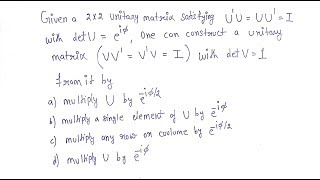 Given a 2x2 unitary matrix satisfying U'U = UU' = I
with det U = e^{iφ}, One can construct a unitary
matrix (VV' = V'V = I) with det V = 1
from it by
a) multiply U by e^{-iφ/2}
b) multiply a single element of U by e^{-iφ}
c) multiply any row or coolumn by e^{-iφ/2}
d) multiply U by e^{-iφ}